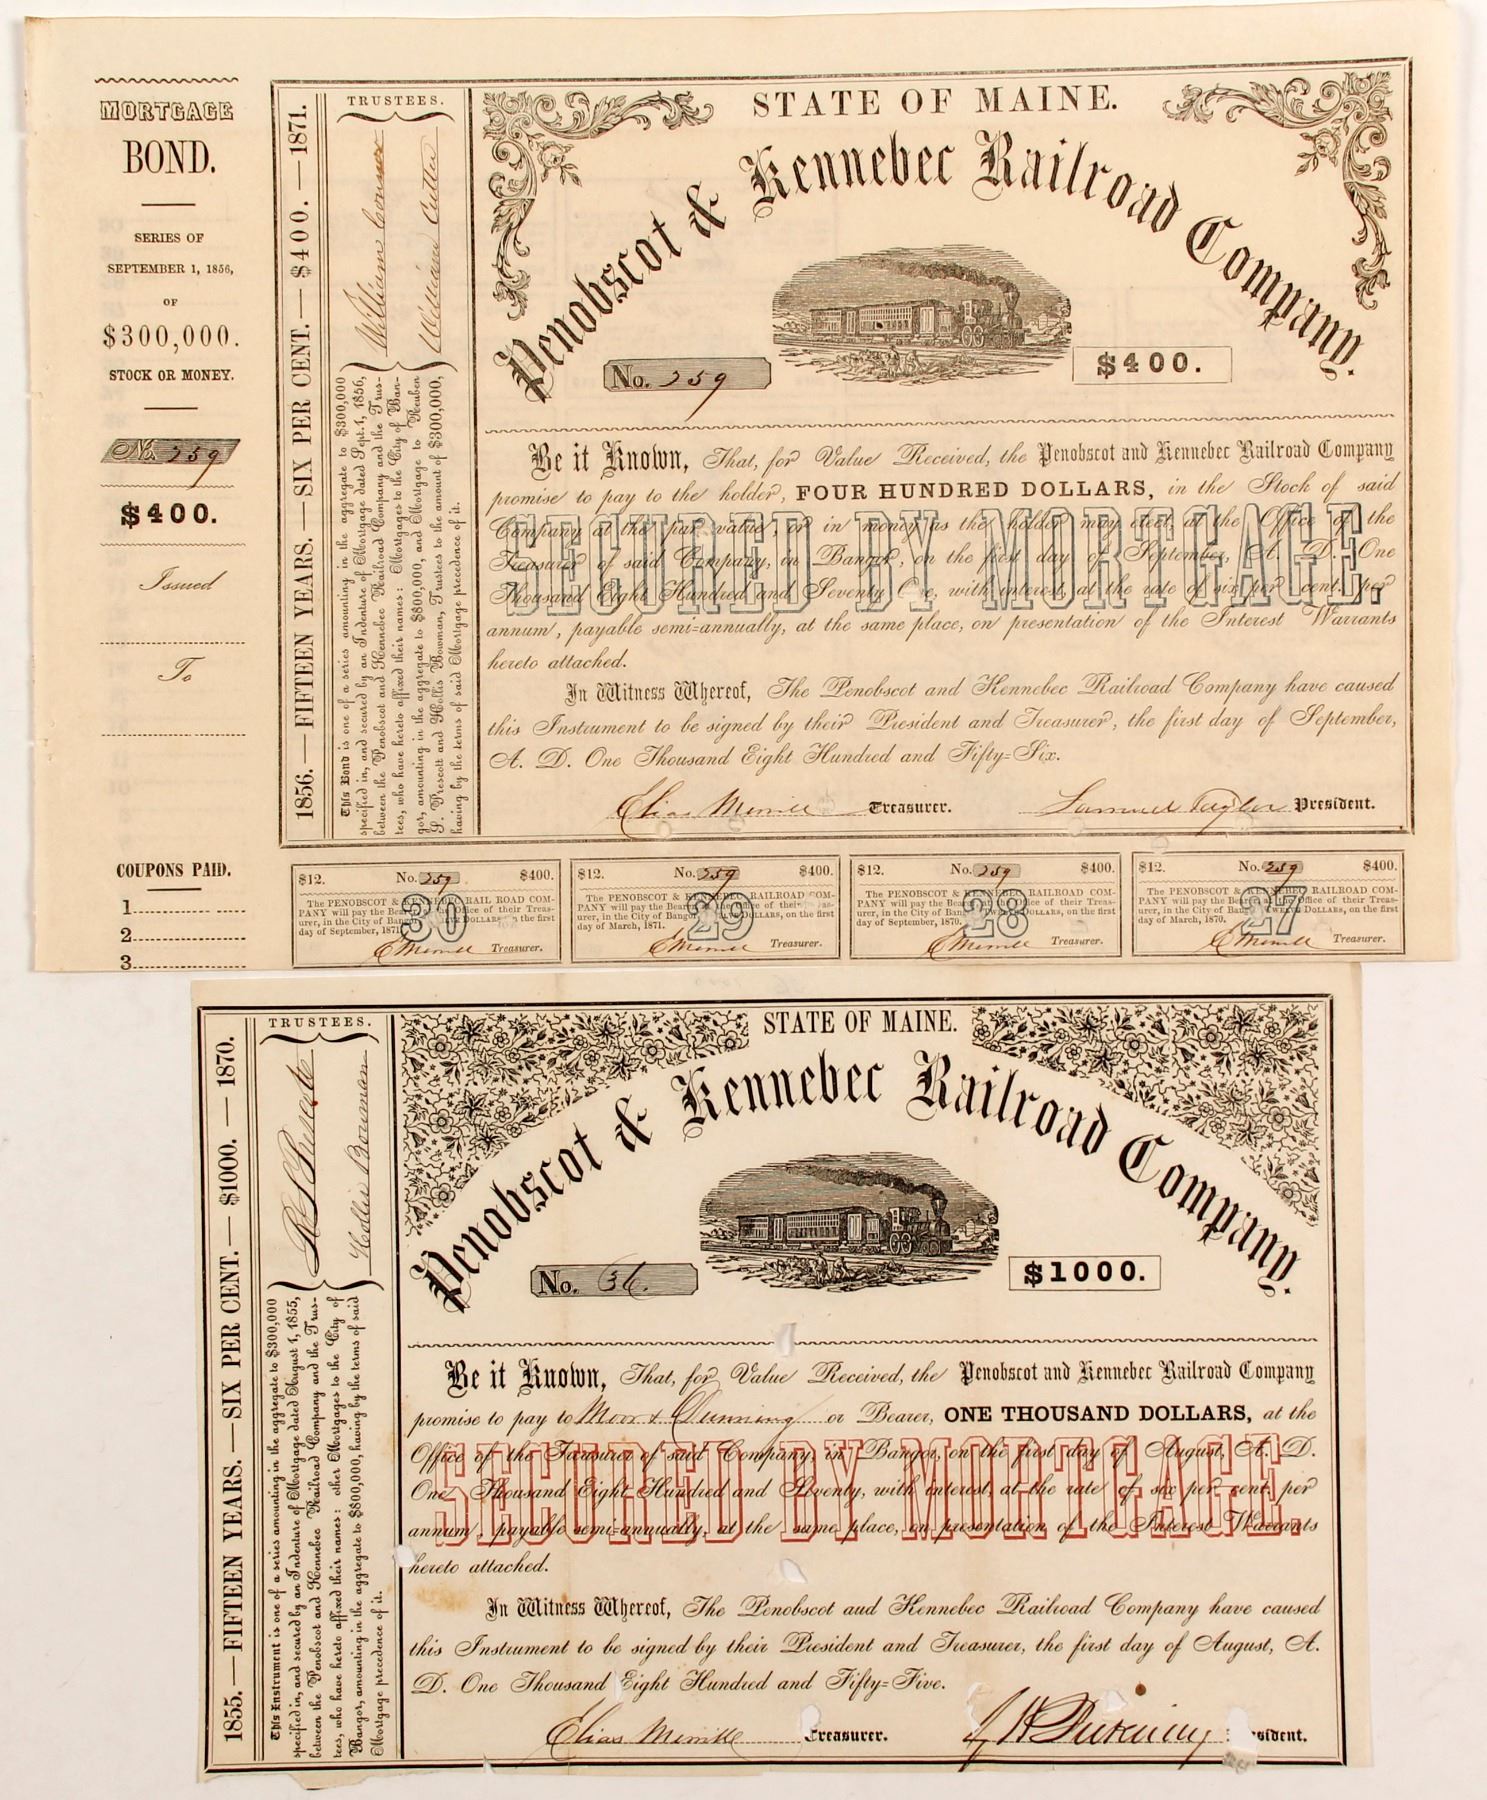 MORTGAGE
BOND.
SERIES OF
SEPTEMBER 1, 1856,
OF
$300,000.
STOCK OR MONEY.
No. 259
$400.
Issued
To
COUPONS PAID.
1
2
3
1856.—FIFTEEN YEARS.—SIX PER CENT.—$400.—1871.
TRUSTEES.
William Cutter
This Bond is one of a series amounting in the aggregate to $300,000
specified in, and secured by an Indenture of Mortgage dated Sept. 1, 1856,
between the Penobscot and Kennebec Railroad Company and the Trus-
tees, who have hereto affixed their names: other Mortgages to the City of Ban-
gor, amounting in the aggregate to $800,000, and Mortgage to Reuben
S. Prescott and Hollis Bowman, Trustees to the amount of $300,000,
having by the terms of said Mortgage precedence of it.
STATE OF MAINE.
Penobscot & Kennebec Railroad Company.
No. 259
$400.
Be it Known, That, for Value Received, the Penobscot and Kennebec Railroad Company
promise to pay to the holder, FOUR HUNDRED DOLLARS, in the Stock of said
Company at the par value, or in money as the holder may elect, at the Office of the
Treasurer of said Company, in Bangor, on the first day of September, A. D. One
Thousand Eight Hundred and Seventy One, with interest, at the rate of six per cent. per
annum, payable semi-annually, at the same place, on presentation of the Interest Warrants
hereto attached.
SECURED BY MORTGAGE.
In Witness Whereof, The Penobscot and Kennebec Railroad Company have caused
this Instrument to be signed by their President and Treasurer, the first day of September,
A. D. One Thousand Eight Hundred and Fifty-Six.
Elias Merrill Treasurer. Samuel Taylor President.
$12. No. 259 $400.
The PENOBSCOT & KENNEBEC RAIL ROAD COM-
PANY will pay the Bearer Office of their Treas-
urer, in the City of Bangor, TWELVE DOLLARS, on the first
day of September, 1871.
30
E Merrill Treasurer.
$12. No. 259 $400.
The PENOBSCOT & KENNEBEC RAILROAD COM-
PANY will pay the Bearer Office of their Treas-
urer, in the City of Bangor, TWELVE DOLLARS, on the first
day of March, 1871.
29
E Merrill Treasurer.
$12. No. 259 $400.
The PENOBSCOT & KENNEBEC RAILROAD COM-
PANY will pay the Bearer Office of their Treas-
urer, in the City of Bangor, TWELVE DOLLARS, on the first
day of September, 1870.
28
E Merrill Treasurer.
$12. No. 259 $400.
The PENOBSCOT & KENNEBEC RAILROAD COM-
PANY will pay the Bearer Office of their Treas-
urer, in the City of Bangor, TWELVE DOLLARS, on the first
day of March, 1870.
27
E Merrill Treasurer.
1855.—FIFTEEN YEARS.—SIX PER CENT.—$1000.—1870.
TRUSTEES.
R S Prescott
Hollis Bowman
This Instrument is one of a series amounting in the aggregate to $300,000
specified in, and secured by an Indenture of Mortgage dated August 1, 1855,
between the Penobscot and Kennebec Railroad Company and the Trus-
tees, who have hereto affixed their names: other Mortgages to the City of
Bangor, amounting in the aggregate to $800,000, having by the terms of said
Mortgage precedence of it.
STATE OF MAINE.
Penobscot & Kennebec Railroad Company.
No. 36.
$1000.
Be it Known, That, for Value Received, the Penobscot and Kennebec Railroad Company
promise to pay to Moor & Dunning or Bearer, ONE THOUSAND DOLLARS, at the
Office of the Treasurer of said Company, in Bangor, on the first day of August, A. D.
One Thousand Eight Hundred and Seventy, with interest, at the rate of six per cent. per
annum, payable semi-annually, at the same place, on presentation of the Interest Warrants
hereto attached.
SECURED BY MORTGAGE.
In Witness Whereof, The Penobscot and Kennebec Railroad Company have caused
this Instrument to be signed by their President and Treasurer, the first day of August, A.
D. One Thousand Eight Hundred and Fifty-Five.
Elias Merrill Treasurer. President.